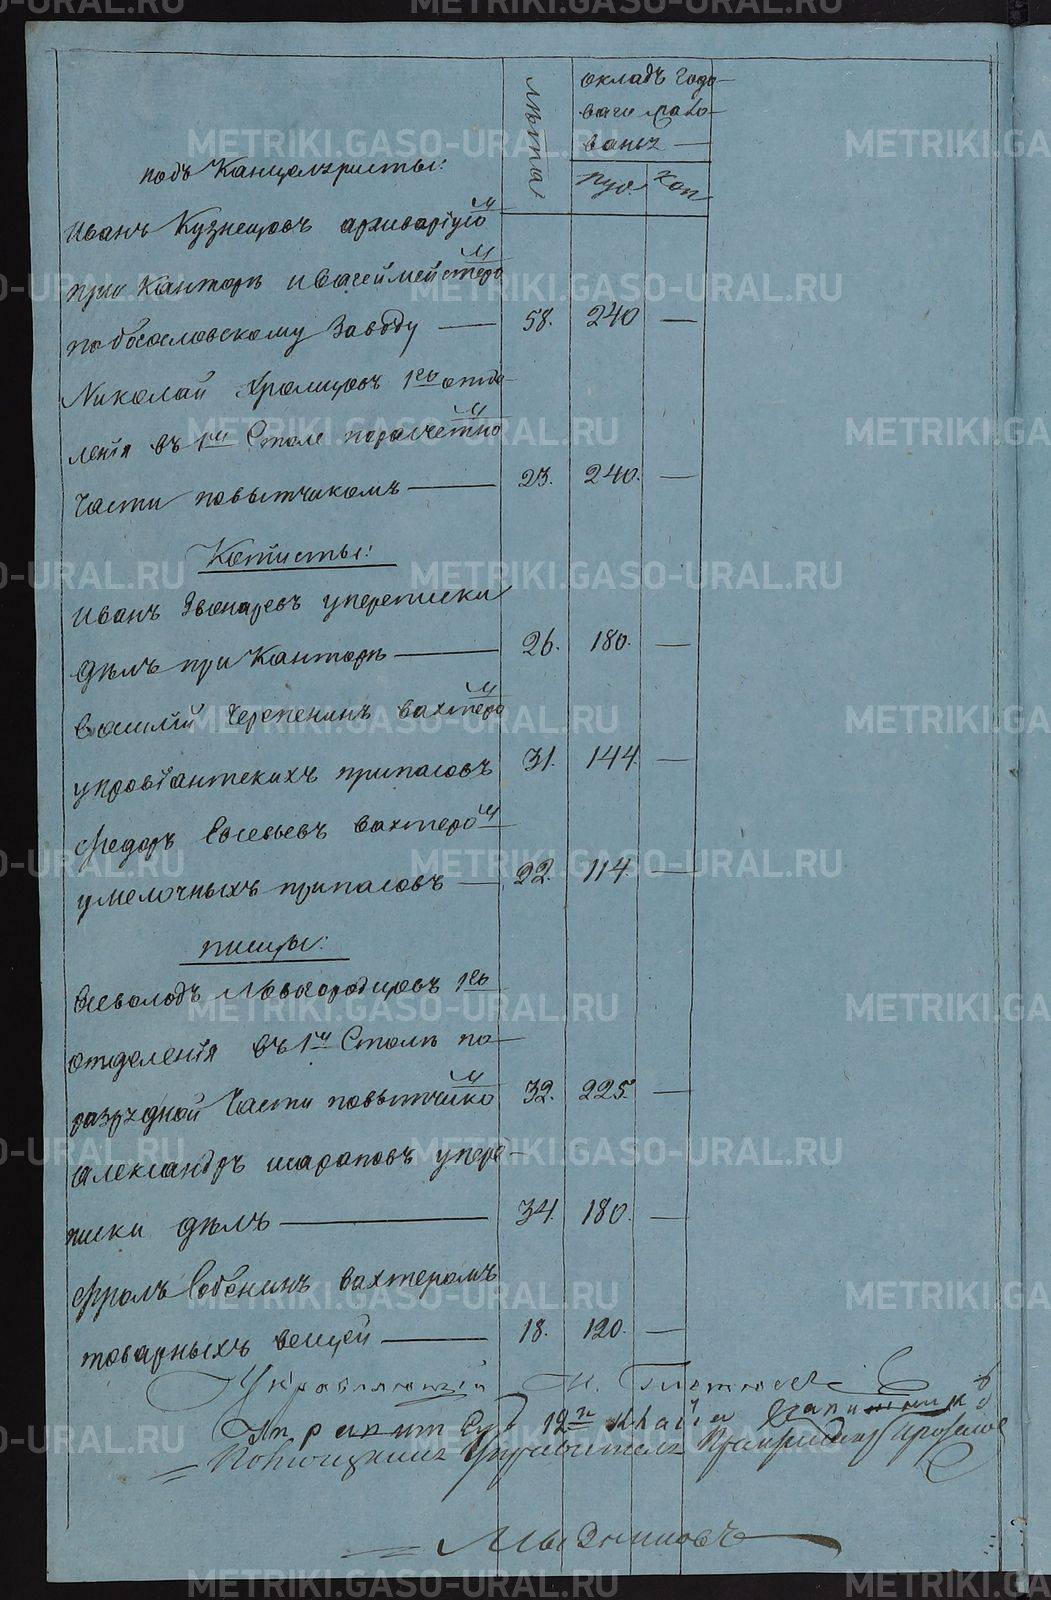 лѣта
окладъ годо-
ваго жало-
ванья
руб. коп
подъ Канцеляристы:
Иванъ Кузнецовъ архиваріусомъ
при Канторѣ и вагеймейстеромъ
по богословскому Заводу — 58. 240 —
Николай Хромцовъ 1го отдѣ-
ленія въ 1мъ Столе по расчетной
части повытчикомъ — 23. 240. —
Копіисты:
Иванъ Звонаревъ у переписки
дѣлъ при Канторѣ — 26. 180. —
Василій Черепенинъ вахтеромъ
у провіантскихъ припасовъ 31. 144. —
Федоръ Евсевьевъ вахтеромъ
у мелочныхъ припасовъ — 22. 114. —
писцы:
Всеволодъ Новгородцовъ 1го
отделенія въ 1мъ Столѣ по
разрядной части повытчикомъ 32. 225. —
Александръ шараповъ у пере-
писки дѣлъ — 34. 180. —
Фролъ Собенинъ вахтеромъ
товарныхъ вещей — 18. 120. —
Управляющій
12го класса
Помощникъ Управителя
METRIKI.GASO-URAL.RU